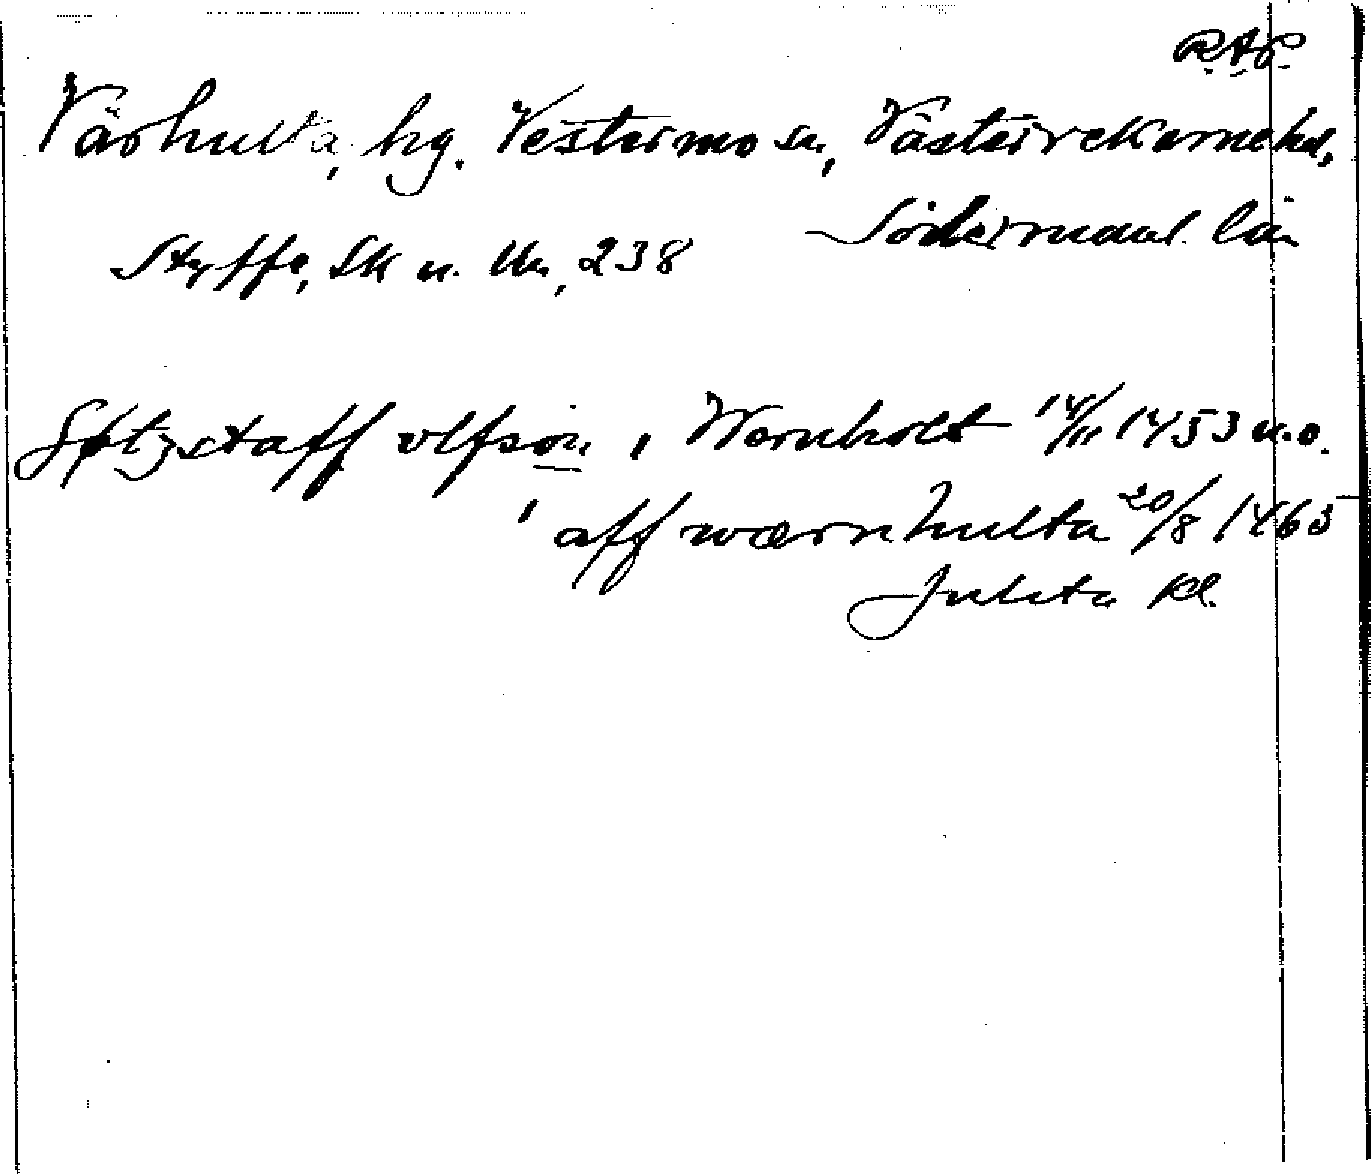 R.A.P.
Värhulta, hg. Vestermo sn, Västerrekarne hd,
Södermanl. län
Styffe, Sk u. Un, 238
Gøtzstaff vlfson, i Wernholt 14/11 1453 u.o.
i aff wærnhulta 20/8 1465
Julita kl.